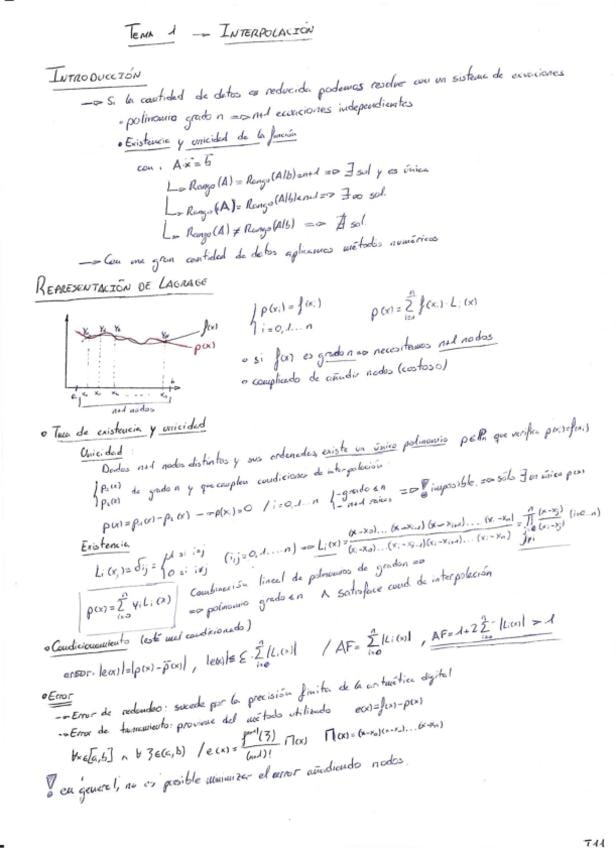 TEMA 1 → INTERPOLACIÓN
INTRODUCCIÓN
→ Si la cantidad de datos es reducida podemos resolver con un sistema de ecuaciones
• polinomio grado n => n+1 ecuaciones independientes
• Existencia y unicidad de la función
con. Ax = b
↳ Rango(A) = Rango(A|b) = n+1 => ∃ sol y es única
↳ Rango(A) = Rango(A|b) < n+1 => ∃ ∞ sol.
↳ Rango(A) ≠ Rango(A|b) => ∄ sol.
→ Con una gran cantidad de datos aplicamos métodos numéricos
REPRESENTACIÓN DE LAGRAGE
f(x)
p(x)
n+1 nodos
{ p(xi) = f(xi)
i = 0,1...n
p(x) = Σ f(xi) · Li(x)
• si f(x) es grado n => necesitamos n+1 nodos
• complicado de añadir nodos (costoso)
• Tma de existencia y unicidad
Unicidad
Dados n+1 nodos distintos y sus ordenadas, existe un único polinomio p∈Pn que verifica p(xi)=f(xi)
{ p1(x) p2(x) de grado n y que cumplen condiciones de interpolación
p(x) = p1(x) - p2(x) → p(xi) = 0 / i=0,1...n { - grado ≤ n - n+1 raíces => ! imposible. => sólo ∃ un único p(x)
Existencia
Li(xj) = δij = { 1 si i=j 0 si i≠j (i,j=0,1...n) => Li(x) = (x-x0)...(x-xi-1)(x-xi+1)...(x-xn) / (xi-x0)...(xi-xi-1)(xi-xi+1)...(xi-xn) = Π (x-xj)/(xi-xj) (i=0..n)
p(x) = Σ yi Li(x)
Combinación lineal de polinomios de grado n =>
=> polinomio grado ≤ n ∧ satisface cond. de interpolación
• Condicionamiento (está mal condicionado)
error. |e(x)| = |p(x) - p̃(x)|, |e(x)| ≤ ε · Σ |Li(x)| / AF = Σ |Li(x)|, AF = 1 + 2 Σ |Li(x)| > 1
• Error
→ Error de redondeo: sucede por la precisión finita de la aritmética digital
→ Error de truncamiento: proviene del método utilizado e(x) = f(x) - p(x)
∀x∈[a,b] ∧ ∀ξ∈(a,b) / e(x) = f^(n+1)(ξ)/(n+1)! Π(x) Π(x) = (x-x0)(x-x1)...(x-xn)
! en general, no es posible minimizar el error añadiendo nodos.